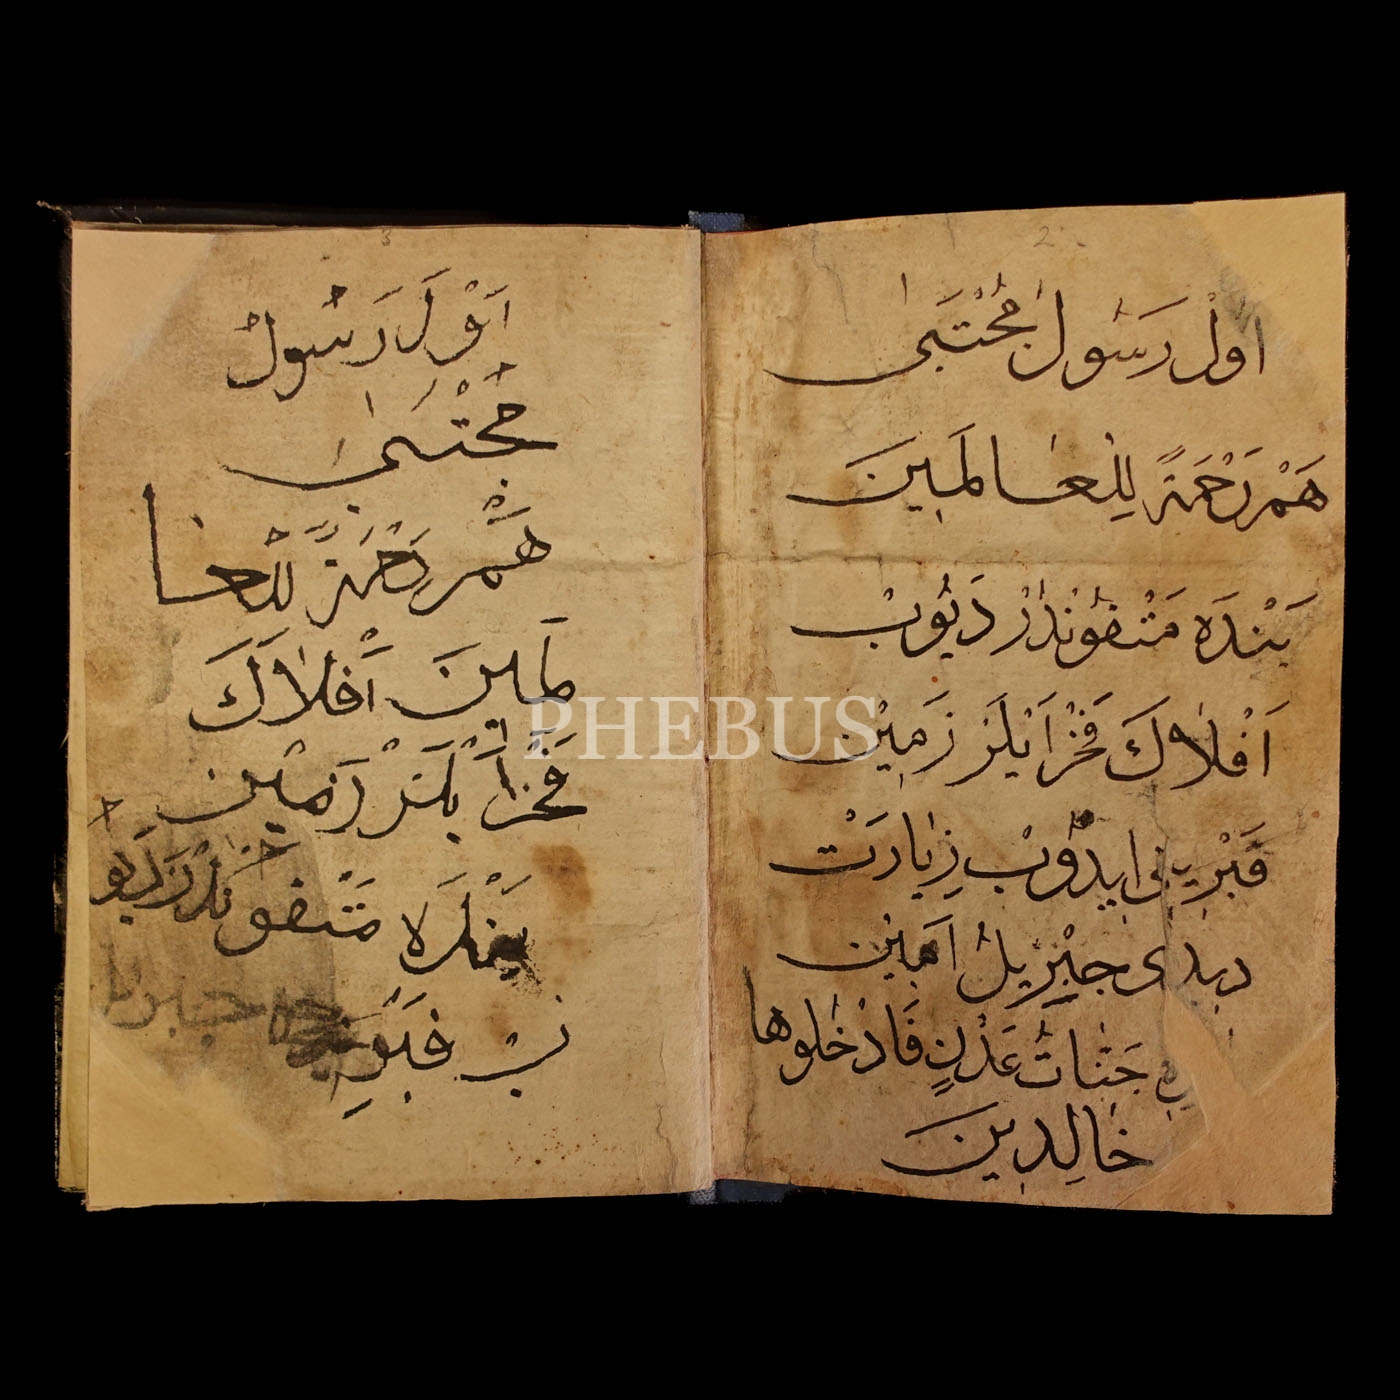 2
اولْ رَسُولِ مُجْتَبٰى
هَمْ رَحْمَةً لِلْعٰالَمِينَ
بَنْدَه مَتْفُونْدُرْ دَيُوبْ
اَفْلٰاكَ فَخْرْ اَيْلَرْ زَمِينْ
قَبْرِينِى ايدُوبْ زِيَارَتْ
ديدى جبْرِيلْ اَمِينْ
جَنَّاتُ عَدْنٍ فَادْخُلُوها
خٰالِدِينَ
3
اَوْلَ رَسُولُ
مُجْتَبٰى
هَمْ رَحْمَةً لِلْعٰا
لَمِينَ اَفْلٰاكَ
فَخْرْ اَيْلَرْ زَمِينْ
بَنْدَه مَتْفُونْدُرْ دَيُو
بْ قَبْرِ
PHEBUS